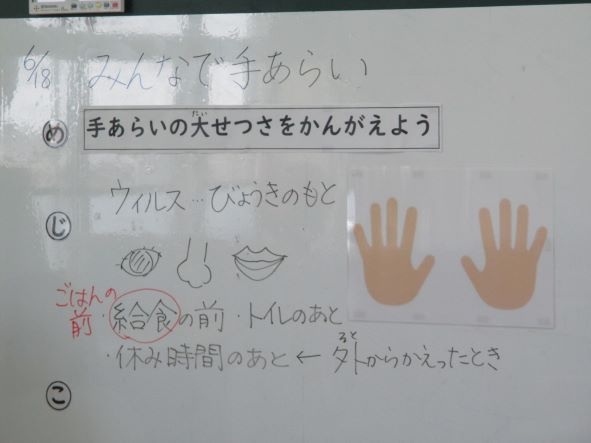 6/18 みんなで手あらい
め 手あらいの大せつさをかんがえよう
たい
じ ウィルス…びょうきのもと
ごはんの前
・給食の前・トイレのあと
・休み時間のあと ← 外からかえったとき
そと
こ